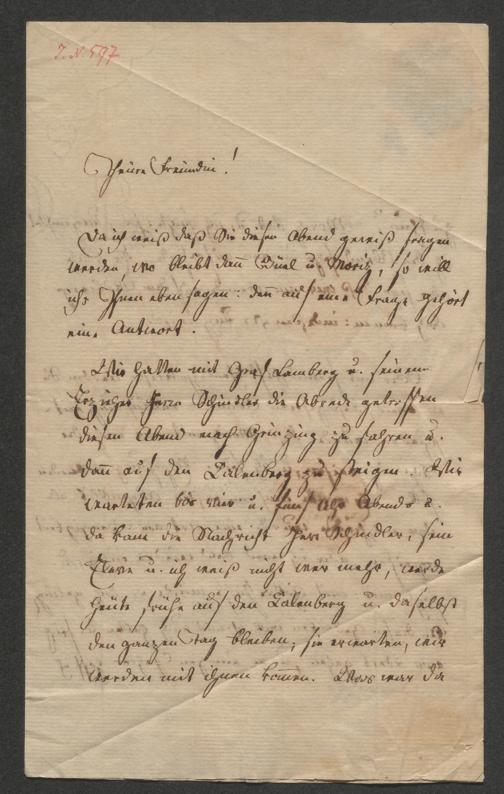 I. N. 597
Theure Freundin!
Da ich weiß daß Sie diesen Abend gewiß fragen
werden, wo bleibt denn u. Moritz, so will
ichs Ihnen eben sagen: denn auf eine Frage gehört
eine Antwort.
Wir hatten mit Graf Lamberg u. seinem
Erzieher Herrn Schindler die Abrede getroffen
diesen Abend nach Grinzing zu fahren u.
dann auf den Kalenberg zu steigen. Wir
warteten bis vier u. fünf Uhr Abends u.
da kam die Nachricht Herr Schindler, sein
Eleve u. ich weiß nicht wer mehr, werde
heute frühe auf den Kalenberg u. daselbst
den ganzen Tag bleiben; sie erwarten, wir
werden mit ihnen komen. Was war da